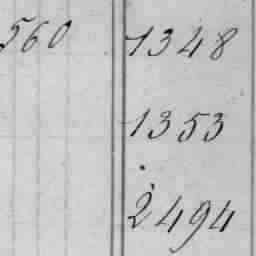 560 1348
1353
2494